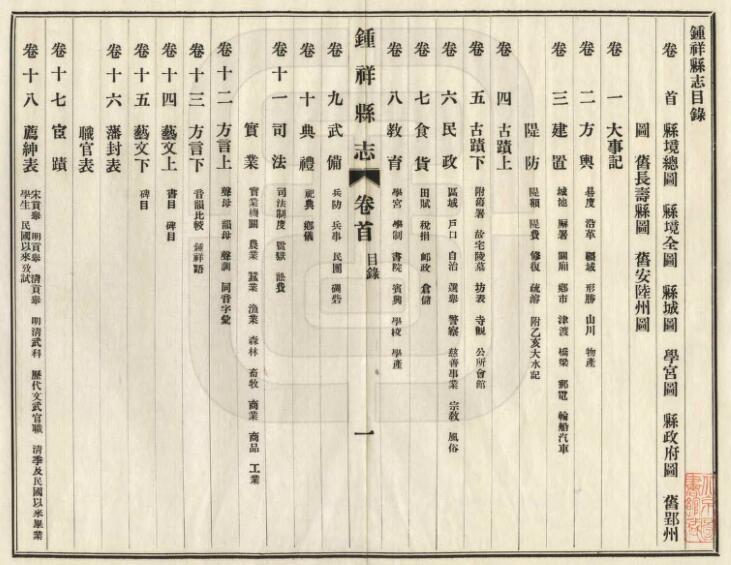 鍾祥縣志目錄
卷首 縣境總圖 縣境全圖 縣城圖 學宮圖 縣政府圖 舊郢州
圖 舊長壽縣圖 舊安陸州圖
卷一 大事記
卷二 方輿 晷度 沿革 疆域 形勝 山川 物產
卷三 建置 城池 廨署 關廟 鄉市 津渡 橋梁 郵電 輪船汽車
隄防 隄額 隄費 修復 疏濬 附乙亥大水記
卷四 古蹟上
卷五 古蹟下 附藩署 故宅陵墓 坊表 寺觀 公所會館
卷六 民政 區域 戶口 自治 選舉 警察 慈善事業 宗教 風俗
卷七 食貨 田賦 稅捐 郵政 倉儲
卷八 教育 學宮 學制 書院 賓興 學校 學產
鍾祥縣志 卷首 目錄 一
卷九 武備 兵防 兵事 民團 碉砦
卷十 典禮 祀典 鄉儀
卷十一 司法 司法制度 監獄 訟費
實業 實業機關 農業 蠶業 漁業 森林 畜牧 商業 商品 工業
卷十二 方言上 聲母 韻母 聲調 同音字彙
卷十三 方言下 音韻比較 鍾祥語
卷十四 藝文上 書目 碑目
卷十五 藝文下 碑目
卷十六 藩封表
職官表
卷十七 宦蹟
卷十八 薦紳表 宋貢舉 明貢舉 清貢舉 明清武科 歷代文武官職 清季及民國以來畢業
學生 民國以來攷試